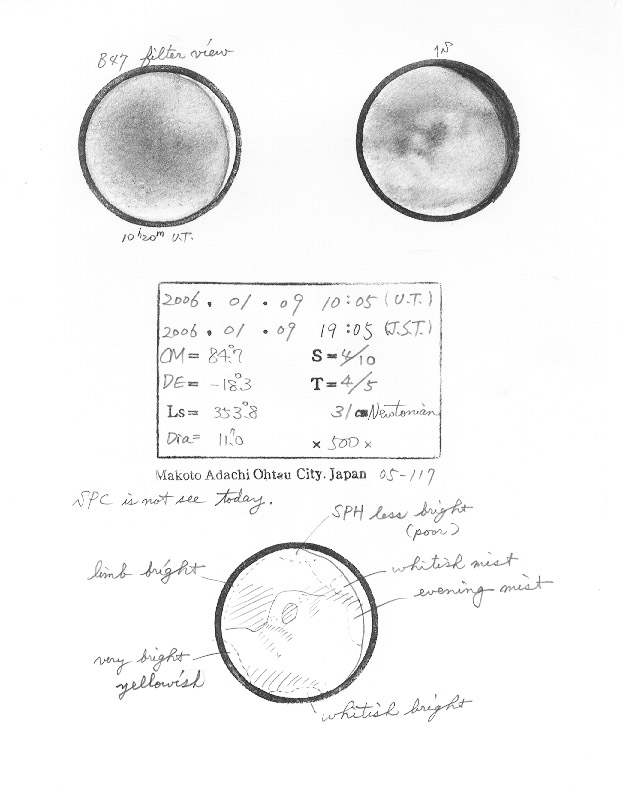 B47 filter view
10ʰ20ᵐ U.T.
2006. 01. 09 10:05 (U.T.)
2006. 01. 09 19:05 (J.S.T.)
CM= 84°.7 S=4/10
DE= -18°.3 T=4/5
Ls= 353°.8 31cm Newtonian
Dia= 11".0 × 500 ×
Makoto Adachi Ohtsu City, Japan 05-117
SPC is not see today.
SPH less bright
(poor)
limb bright
whitish mist
evening mist
very bright
yellowish
whitish bright